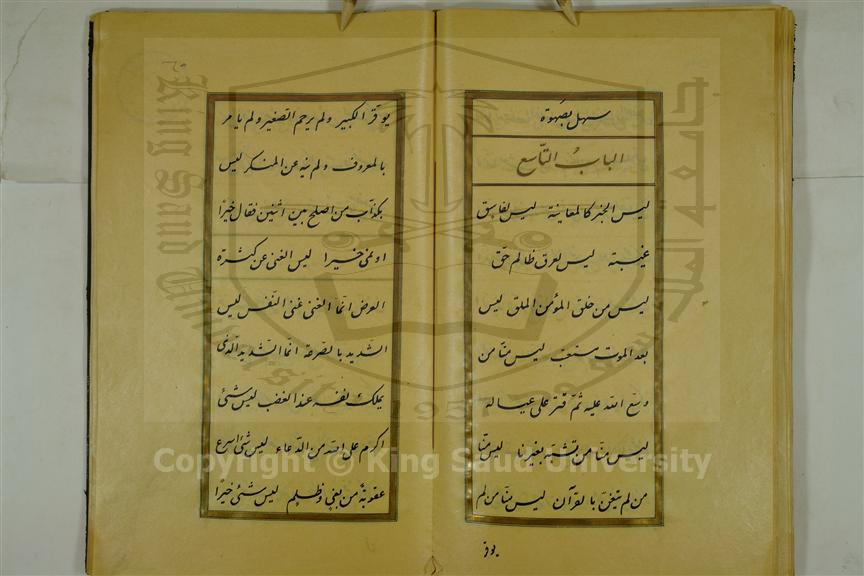 سهل بصهوة
الباب التاسع
ليس الخبر كالمعاينة ليس لفاسق
غيبة ليس لعرق ظالم حق
ليس من خلق المؤمن الملق ليس
بعد الموت مستعتب ليس منا من
وسع الله عليه ثم قتر على عياله
ليس منا من تشبه بغيرنا ليس منا
من لم يتغن بالقرآن ليس منا من لم
يوقر
يوقر الكبير ولم يرحم الصغير ولم يامر
بالمعروف ولم ينه عن المنكر ليس
بكذاب من اصلح بين اثنين فقال خيرا
او نمى خيرا ليس الغنى عن كثرة
العرض انما الغنى غنى النفس ليس
الشديد بالصرعة انما الشديد الذى
يملك نفسه عند الغضب ليس شئ
اكرم على الله من الدعاء ليس شئ اسرع
عقوبة من بغى وظلم ليس شئ خيرا
King Saud University
جامعة الملك
1957
Copyright © King Saud University